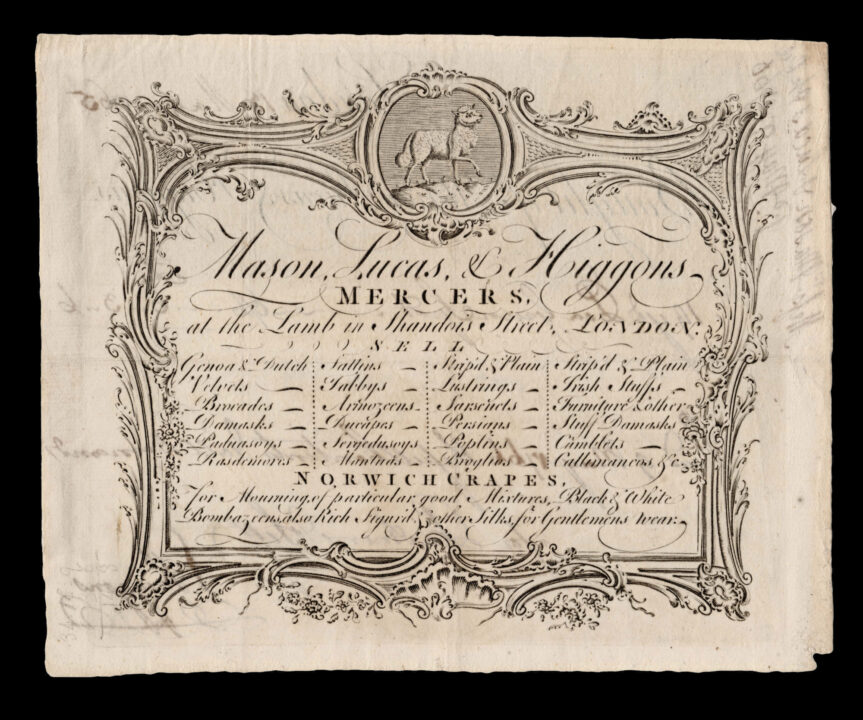 Mason, Lucas, & Higgons,
MERCERS,
at the Lamb in Shandois Street, LONDON.
SELL
Genoa & Dutch
Velvets —
Brocades —
Damasks —
Paduasoys —
Rasdemores —
Sattins —
Tabbys —
Armozeens —
Ducapes —
Serjedusoys —
Mantuas —
Strip'd & Plain
Lustrings —
Sarsenets —
Persians —
Poplins —
Broglios —
Strip'd & Plain
Irish Stuffs —
Furniture & other
Stuff Damasks
Camblets —
Callimancos &c.
NORWICH CRAPES,
for Mourning, of particular good Mixtures, Black & White
Bombazeens, also Rich Figur'd, & other Silks, for Gentlemens wear.